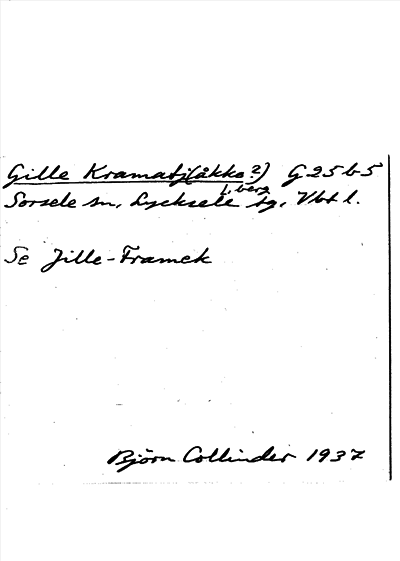 Gille Kramatj(åkko?) G 25 b 5
Sorsele sn, Lycksele tg. Vbt l.
l. berg
Se Jille-Framek
Björn Collinder 1937